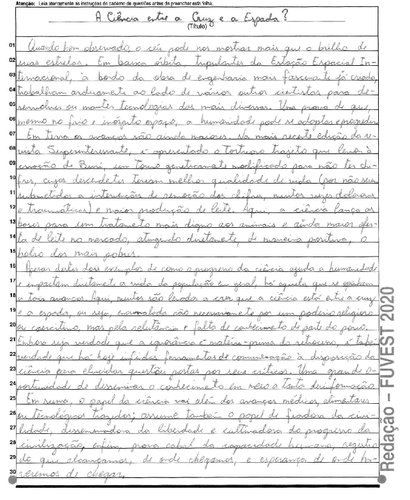 Atenção: Leia atentamente as instruções do caderno de questões antes de preencher esta folha.
A Ciência entre a Cruz e a Espada?
(Título)
01 Quando bem observado o céu pode nos mostrar mais que o brilho de
02 suas estrelas. Em baixa órbita, tripulantes da Estação Espacial In-
03 ternacional, a bordo da obra de engenharia mais fascinante já criada,
04 trabalham arduamente ao lado de vários outros cientistas para de-
05 senvolver ou manter tecnologias das mais diversas. Uma prova de que,
06 mesmo no frio e inóspito espaço, a humanidade pode se adaptar e progredir.
07 Em terra os avanços são ainda maiores. Na mais recente edição da re-
08 vista Superinteressante, é apresentado o tortuoso trajeto que levou à
09 criação de Buri, um touro geneticamente modificado para não ter chi-
10 fres, cujos descendentes teriam melhor qualidade de vida (por não serem
11 submetidos a intervenções de remoção dos chifres, muitas vezes dolorosas
12 e traumáticas) e maior produção de leite. Aqui, a ciência lança as
13 bases para um tratamento mais digno aos animais e ainda maior ofer-
14 ta de leite no mercado, atingindo diretamente, de maneira positiva, o
15 bolso dos mais pobres.
16 Apesar destes dois exemplos de como o progresso da ciência ajuda a humanidade
17 e impactam diretamente a vida da população em geral, há aqueles que se opõem
18 a tais avanços. Aqui, muitos são levados a crer que a ciência está entre a cruz
19 e a espada, ou seja, encurralada não necessariamente por um poderio religioso
20 ou coercitivo, mas pela relutância e falta de conhecimento de parte do povo.
21 Embora seja verdade que a ignorância é matéria-prima do retrocesso, é tam-
22 verdade que há hoje infinitas ferramentas de comunicação à disposição da
23 ciência para elucidar questões postas por seus críticos. Uma grande o-
24 portunidade de disseminar o conhecimento em meio a tanta desinformação.
25 Em suma, o papel da ciência vai além dos avanços médicos, alimentares
26 ou tecnológicos trazidos; assume também o papel de fiadora da civi-
27 lidade, disseminadora da liberdade e cultivadora do progresso da
28 civilização, enfim, prova cabal da capacidade humana, registro
29 do que alcançamos, de onde chegamos, e esperança de onde ha-
30 veremos de chegar.
Redação – FUVEST 2020